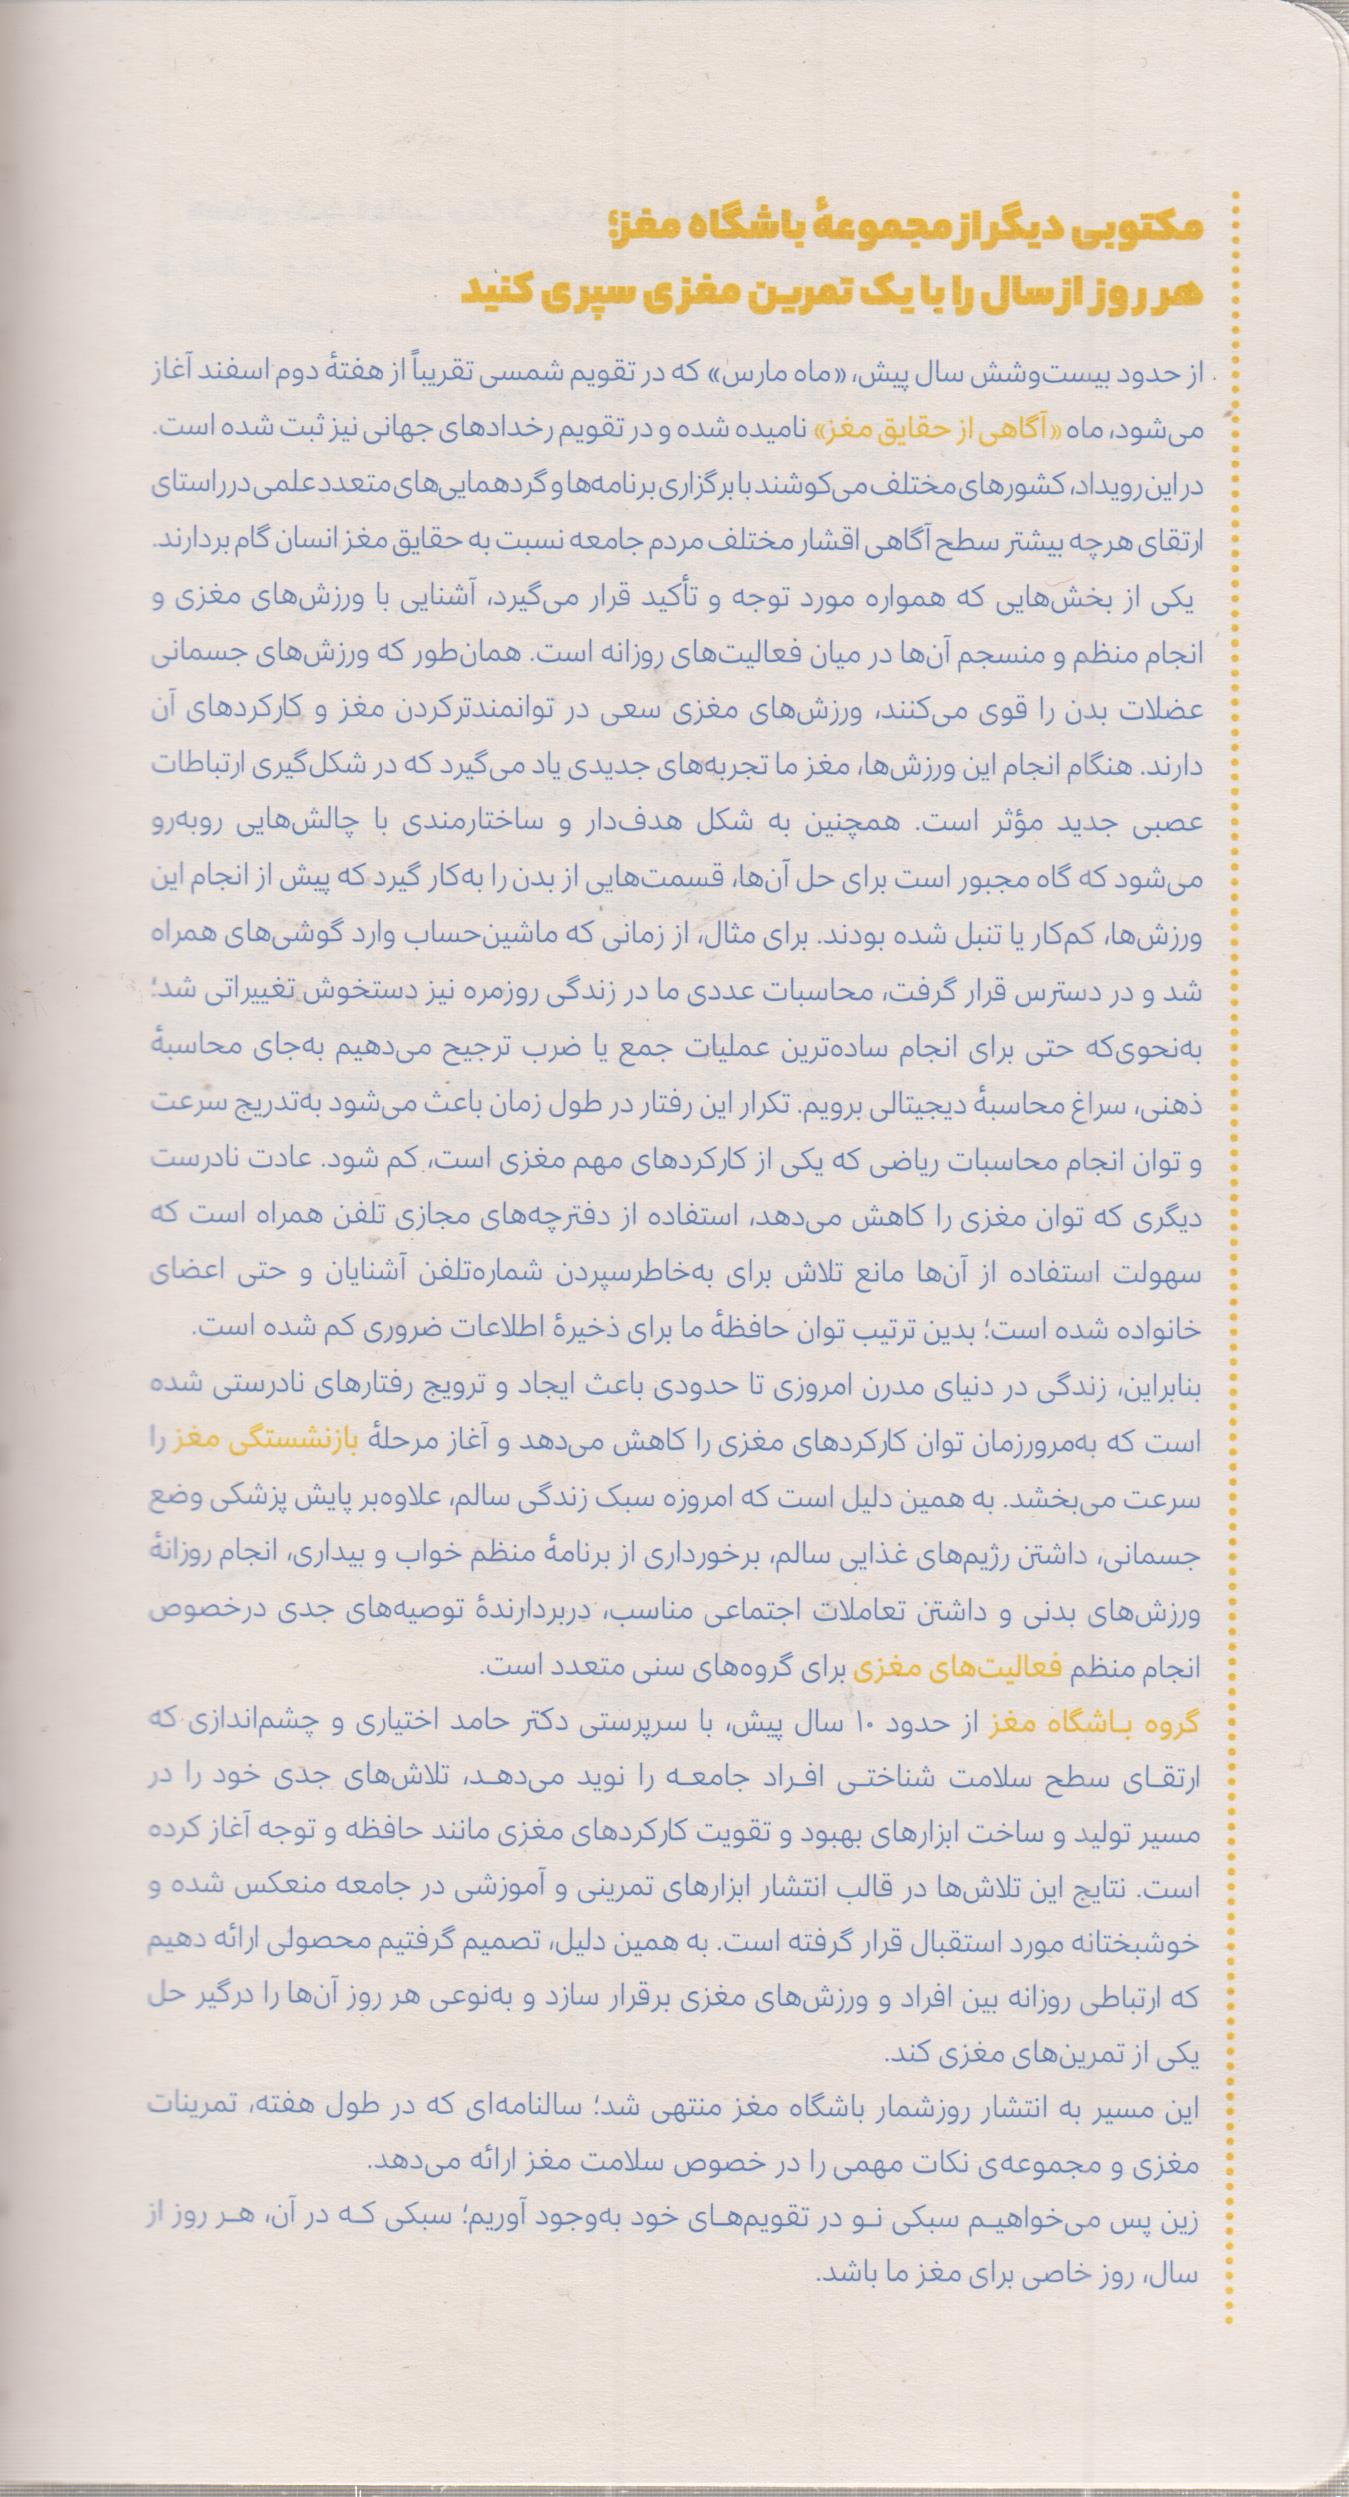 مکتوبی دیگر از مجموعهٔ باشگاه مغز؛
هر روز از سال را با یک تمرین مغزی سپری کنید
از حدود بیست‌وشش سال پیش، «ماه مارس» که در تقویم شمسی تقریباً از هفتهٔ دوم اسفند آغاز
می‌شود، ماه «آگاهی از حقایق مغز» نامیده شده و در تقویم رخدادهای جهانی نیز ثبت شده است.
در این رویداد، کشورهای مختلف می‌کوشند با برگزاری برنامه‌ها و گردهمایی‌های متعدد علمی در راستای
ارتقای هرچه بیشتر سطح آگاهی اقشار مختلف مردم جامعه نسبت به حقایق مغز انسان گام بردارند.
یکی از بخش‌هایی که همواره مورد توجه و تأکید قرار می‌گیرد، آشنایی با ورزش‌های مغزی و
انجام منظم و منسجم آن‌ها در میان فعالیت‌های روزانه است. همان‌طور که ورزش‌های جسمانی
عضلات بدن را قوی می‌کنند، ورزش‌های مغزی سعی در توانمندترکردن مغز و کارکردهای آن
دارند. هنگام انجام این ورزش‌ها، مغز ما تجربه‌های جدیدی یاد می‌گیرد که در شکل‌گیری ارتباطات
عصبی جدید مؤثر است. همچنین به شکل هدف‌دار و ساختارمندی با چالش‌هایی روبه‌رو
می‌شود که گاه مجبور است برای حل آن‌ها، قسمت‌هایی از بدن را به‌کار گیرد که پیش از انجام این
ورزش‌ها، کم‌کار یا تنبل شده بودند. برای مثال، از زمانی که ماشین‌حساب وارد گوشی‌های همراه
شد و در دسترس قرار گرفت، محاسبات عددی ما در زندگی روزمره نیز دستخوش تغییراتی شد؛
به‌نحوی‌که حتی برای انجام ساده‌ترین عملیات جمع یا ضرب ترجیح می‌دهیم به‌جای محاسبهٔ
ذهنی، سراغ محاسبهٔ دیجیتالی برویم. تکرار این رفتار در طول زمان باعث می‌شود به‌تدریج سرعت
و توان انجام محاسبات ریاضی که یکی از کارکردهای مهم مغزی است، کم شود. عادت نادرست
دیگری که توان مغزی را کاهش می‌دهد، استفاده از دفترچه‌های مجازی تلفن همراه است که
سهولت استفاده از آن‌ها مانع تلاش برای به‌خاطرسپردن شماره‌تلفن آشنایان و حتی اعضای
خانواده شده است؛ بدین ترتیب توان حافظهٔ ما برای ذخیرهٔ اطلاعات ضروری کم شده است.
بنابراین، زندگی در دنیای مدرن امروزی تا حدودی باعث ایجاد و ترویج رفتارهای نادرستی شده
است که به‌مرورزمان توان کارکردهای مغزی را کاهش می‌دهد و آغاز مرحلهٔ بازنشستگی مغز را
سرعت می‌بخشد. به همین دلیل است که امروزه سبک زندگی سالم، علاوه‌بر پایش پزشکی وضع
جسمانی، داشتن رژیم‌های غذایی سالم، برخورداری از برنامهٔ منظم خواب و بیداری، انجام روزانهٔ
ورزش‌های بدنی و داشتن تعاملات اجتماعی مناسب، دربردارندهٔ توصیه‌های جدی درخصوص
انجام منظم فعالیت‌های مغزی برای گروه‌های سنی متعدد است.
گروه باشگاه مغز از حدود ۱۰ سال پیش، با سرپرستی دکتر حامد اختیاری و چشم‌اندازی که
ارتقای سطح سلامت شناختی افراد جامعه را نوید می‌دهد، تلاش‌های جدی خود را در
مسیر تولید و ساخت ابزارهای بهبود و تقویت کارکردهای مغزی مانند حافظه و توجه آغاز کرده
است. نتایج این تلاش‌ها در قالب انتشار ابزارهای تمرینی و آموزشی در جامعه منعکس شده و
خوشبختانه مورد استقبال قرار گرفته است. به همین دلیل، تصمیم گرفتیم محصولی ارائه دهیم
که ارتباطی روزانه بین افراد و ورزش‌های مغزی برقرار سازد و به‌نوعی هر روز آن‌ها را درگیر حل
یکی از تمرین‌های مغزی کند.
این مسیر به انتشار روزشمار باشگاه مغز منتهی شد؛ سالنامه‌ای که در طول هفته، تمرینات
مغزی و مجموعه‌ی نکات مهمی را در خصوص سلامت مغز ارائه می‌دهد.
زین پس می‌خواهیم سبکی نو در تقویم‌های خود به‌وجود آوریم؛ سبکی که در آن، هر روز از
سال، روز خاصی برای مغز ما باشد.